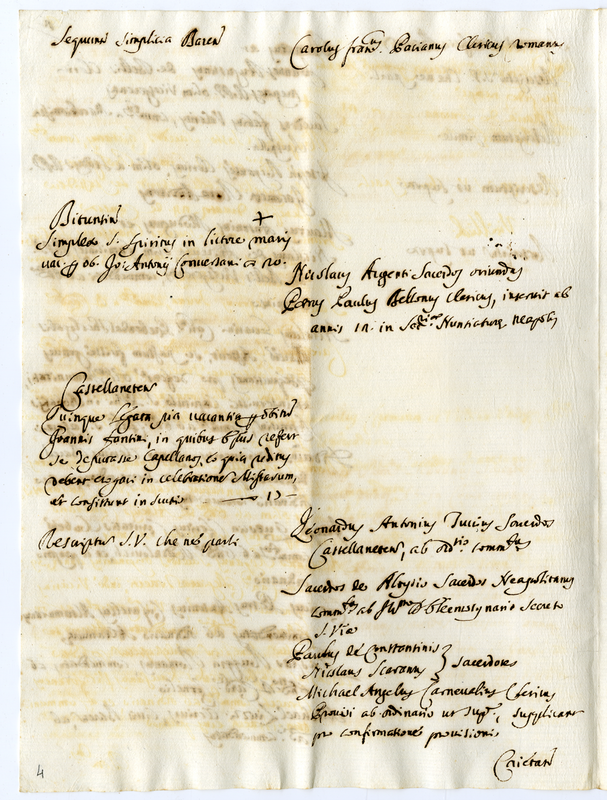 Sequunt Simplicia Baren
Carolus Franc.us Pacianus Clericus romanus
Bituntin
Simplex S. Spiritus in littore maris
vac. p ob. Jo: Antonij Conversani
Nicolaus Argenti Sacerdos oriundus
Petrus Paulus Bellonus Clericus, inservit ab
annis 12. in Nuntiaturae Neapolis
Castellaneten
Quinque legata pia vacantia p obitum
Joannis Fantini, in quibus refert
se deputasse Capellanos, et quia redditus
debent erogari in celebratione Missarum,
et consistunt in scutis — 15 —
Rescriptum S.V. che ne parli
Leonardus Antonius Sacerdos
Castellaneten, ab ord.rio comm.tus
Sacerdos de Aloysio Sacerdos Neapolitanus
comm.tus ab Ill.mo Eleemosynario Secreto
S. V.rae
Paulus de Constantinis
Nicolaus Scarannus } Sacerdotes
Michael Angelus Carnevalius Clericus
Provisi ab ordinario ut sup.a, supplicant
pro confirmatione provisionis
Caietan
4